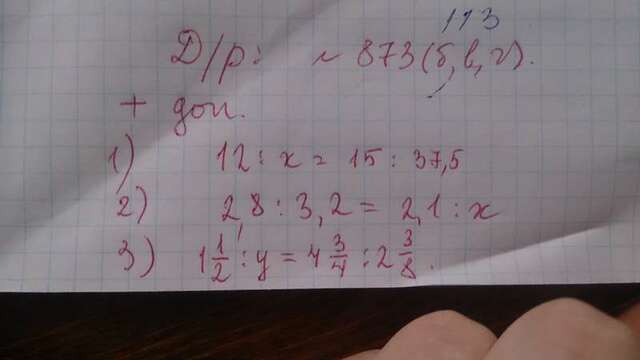 113
Д/р: № 873(б,в,г).
+ доп.
1) 12 : x = 15 : 37,5
2) 2,8 : 3,2 = 2,1 : x
3) 1 1/2 : y = 4 3/4 : 2 3/8.